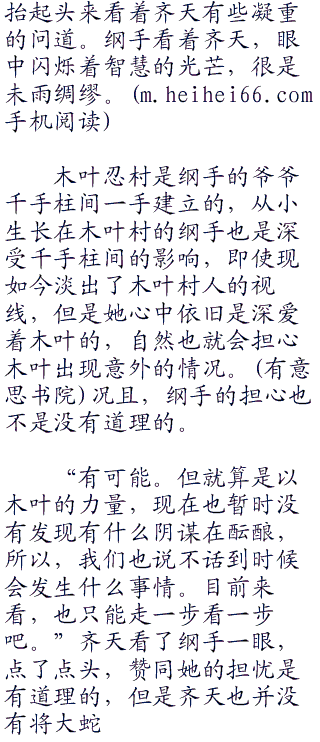 抬起头来看着齐天有些凝重
的问道。纲手看着齐天，眼
中闪烁着智慧的光芒，很是
未雨绸缪。(m.heihei66.com
手机阅读)
木叶忍村是纲手的爷爷
千手柱间一手建立的，从小
生长在木叶村的纲手也是深
受千手柱间的影响，即使现
如今淡出了木叶村人的视
线，但是她心中依旧是深爱
着木叶的，自然也就会担心
木叶出现意外的情况。(有意
思书院)况且，纲手的担心也
不是没有道理的。
“有可能。但就算是以
木叶的力量，现在也暂时没
有发现有什么阴谋在酝酿，
所以，我们也说不话到时候
会发生什么事情。目前来
看，也只能走一步看一步
吧。”齐天看了纲手一眼，
点了点头，赞同她的担忧是
有道理的，但是齐天也并没
有将大蛇